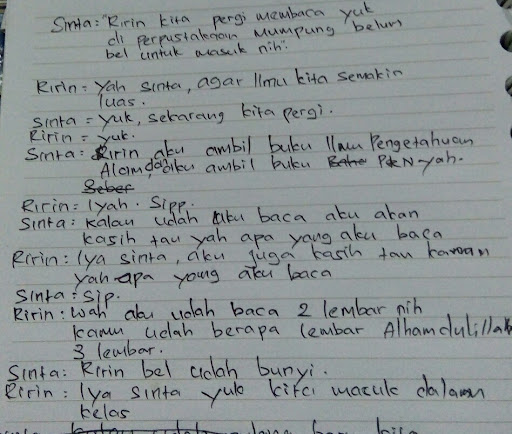 Sinta: "Ririn kita pergi membaca yuk
di perpustakaan mumpung belum
bel untuk masuk nih".
Ririn: Yah Sinta, agar Ilmu kita semakin
luas.
Sinta = Yuk, sekarang kita pergi.
Ririn = yuk.
Sinta: Ririn aku ambil buku Ilmu Pengetahuan
Alam dan aku ambil buku PKN yah.
Ririn: Iyah. Sipp.
Sinta: Kalau udah aku baca aku akan
kasih tau yah apa yang aku baca
Ririn: Iya sinta, aku juga kasih tau kamu
yah apa yang aku baca
Sinta: Sip.
Ririn: Wah aku udah baca 2 lembar nih
kamu udah berapa lembar Alhamdulillah
3 lembar.
Sinta: Ririn bel udah bunyi.
Ririn: Iya sinta yuk kita masuk dalam
kelas